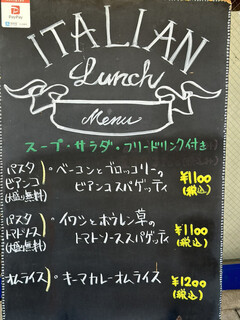 PayPay
ITALIAN
Lunch
Menu
スープ・サラダ・フリードリンク付き
パスタ
ビアンコ
(大盛り無料)
・ベーコンとブロッコリーの
ビアンコスパゲッティ
¥1100
(税込)
パスタ
トマトソース
(大盛無料)
・イワシとホウレン草の
トマトソーススパゲティ
¥1100
(税込)
オムライス
・キーマカレーオムライス
¥1200
(税込)